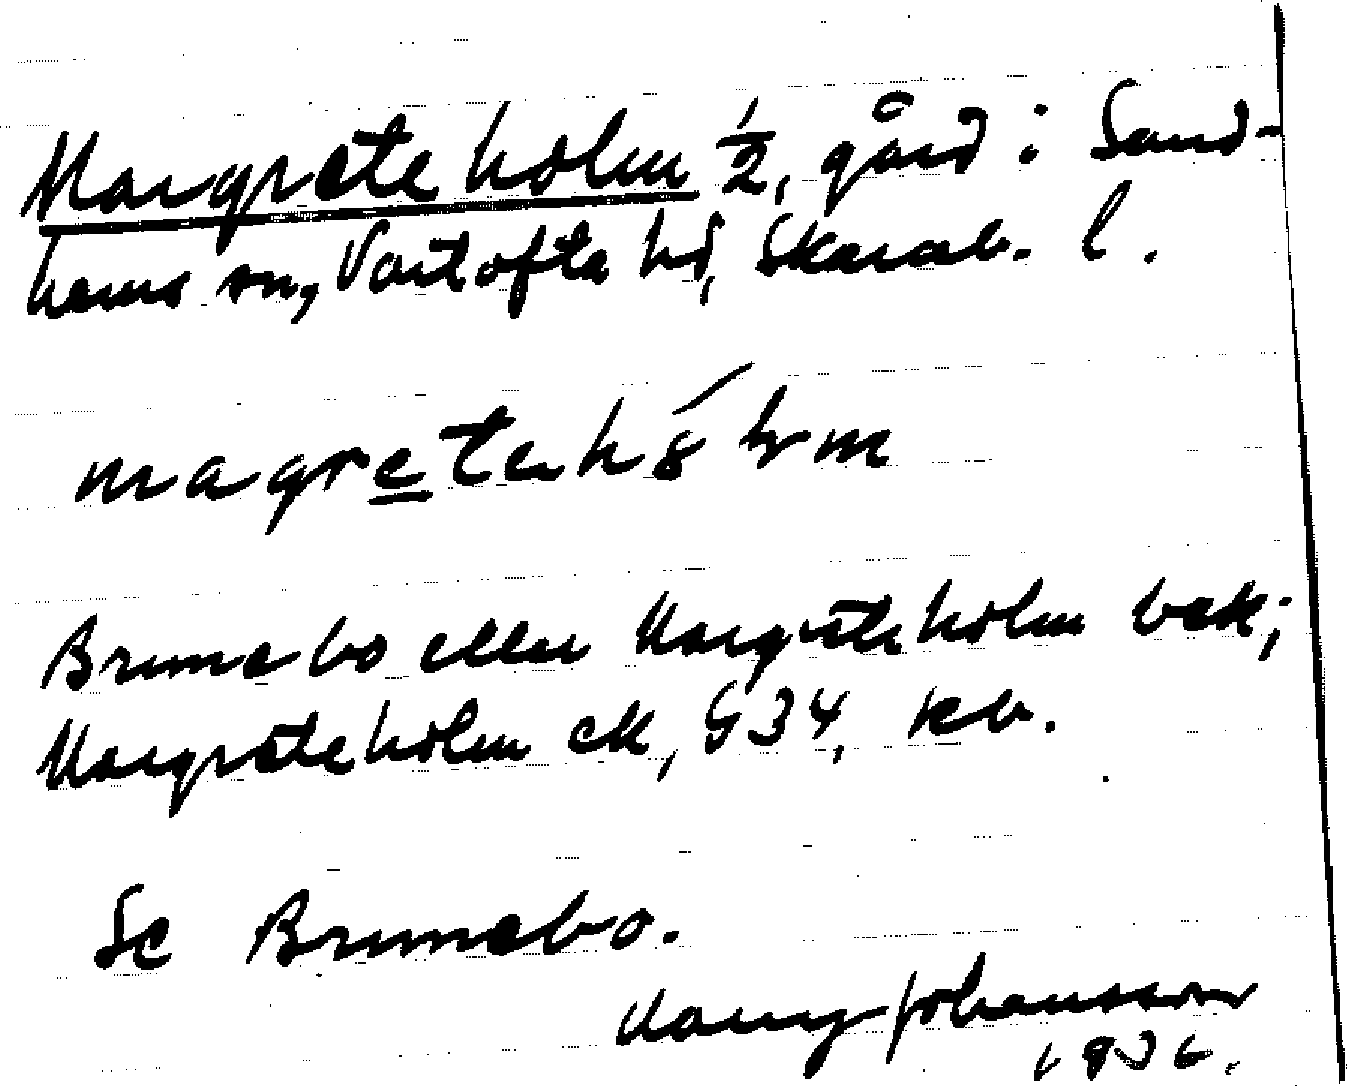 Margreteholm ½, gård i Sand-
hems sn, Vartofta hd, Skarab. l.
magretehólm
Brunebo eller Margreteholm bek;
Margreteholm ek, G34, kb.
Se Brunebo.
Johansson
1936.